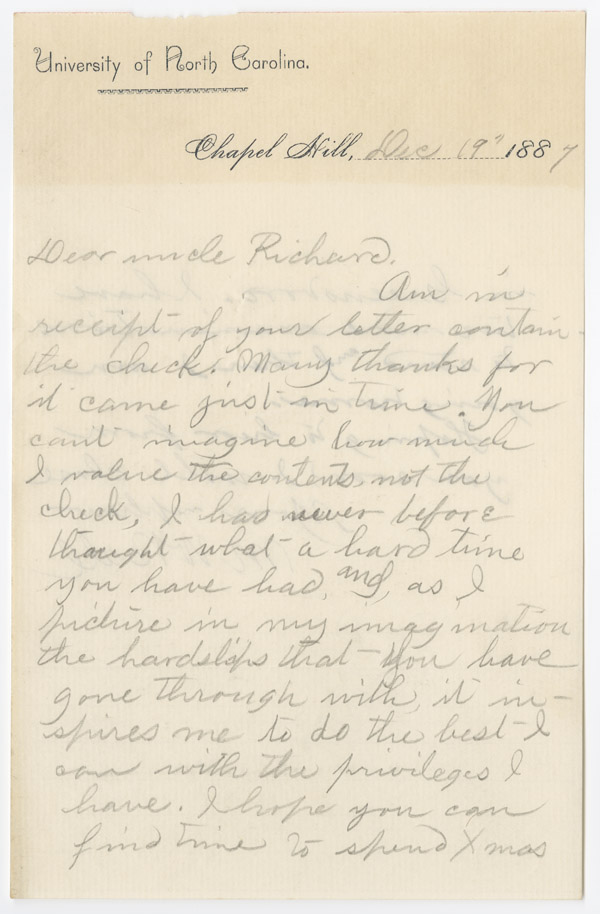 University of North Carolina.
Chapel Hill, Dec 19" 1887
Dear uncle Richard.
Am in
receipt of your letter contain-
the check. Many thanks for
it came just in time. You
can't imagine how much
I value the contents, not the
check, I had never before
thought what a hard time
you have had, and, as I
picture in my imagination
the hardships that you have
gone through with, it in-
spires me to do the best I
can with the privileges I
have. I hope you can
find time to spend Xmas